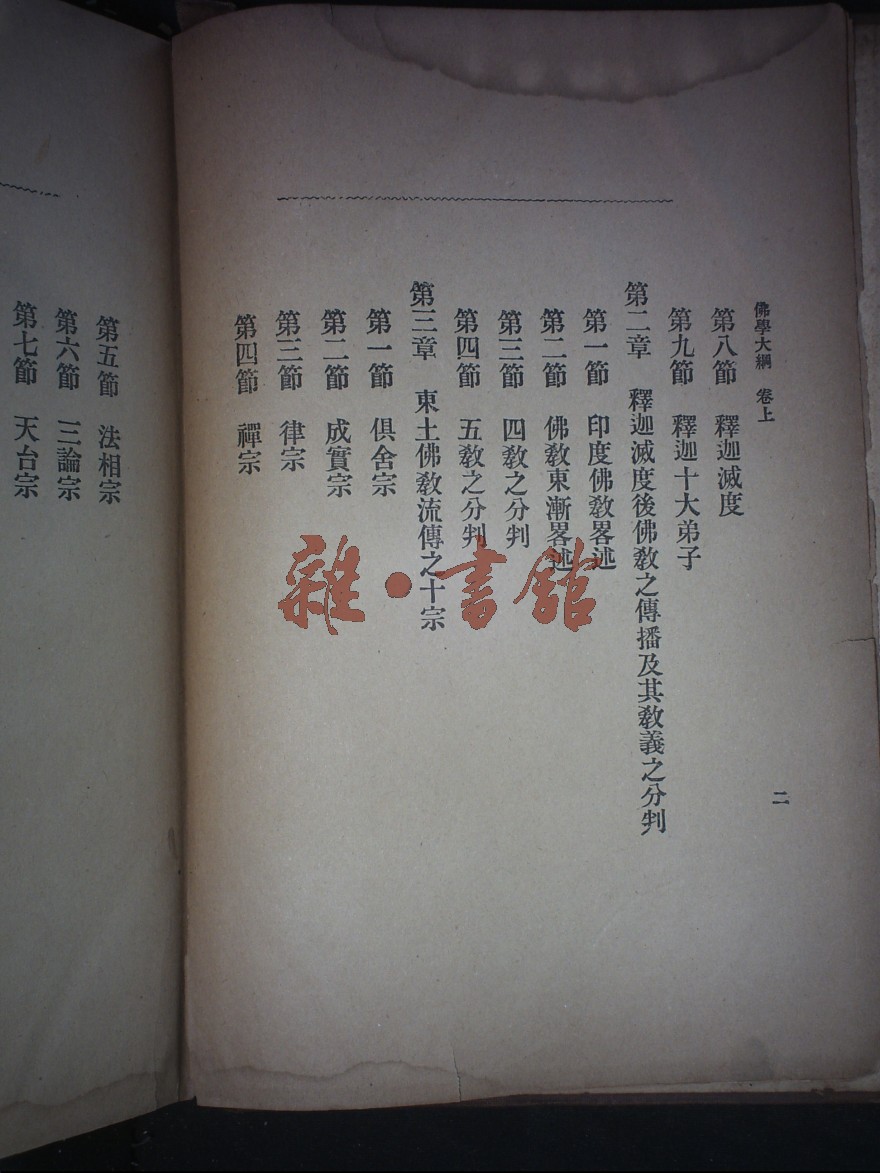 佛學大綱 卷上
二
第八節 釋迦滅度
第九節 釋迦十大弟子
第二章 釋迦滅度後佛敎之傳播及其敎義之分判
第一節 印度佛敎畧述
第二節 佛敎東漸畧述
第三節 四敎之分判
第四節 五敎之分判
第三章 東土佛敎流傳之十宗
第一節 俱舍宗
第二節 成實宗
第三節 律宗
第四節 禪宗
第五節 法相宗
第六節 三論宗
第七節 天台宗
雜·書館